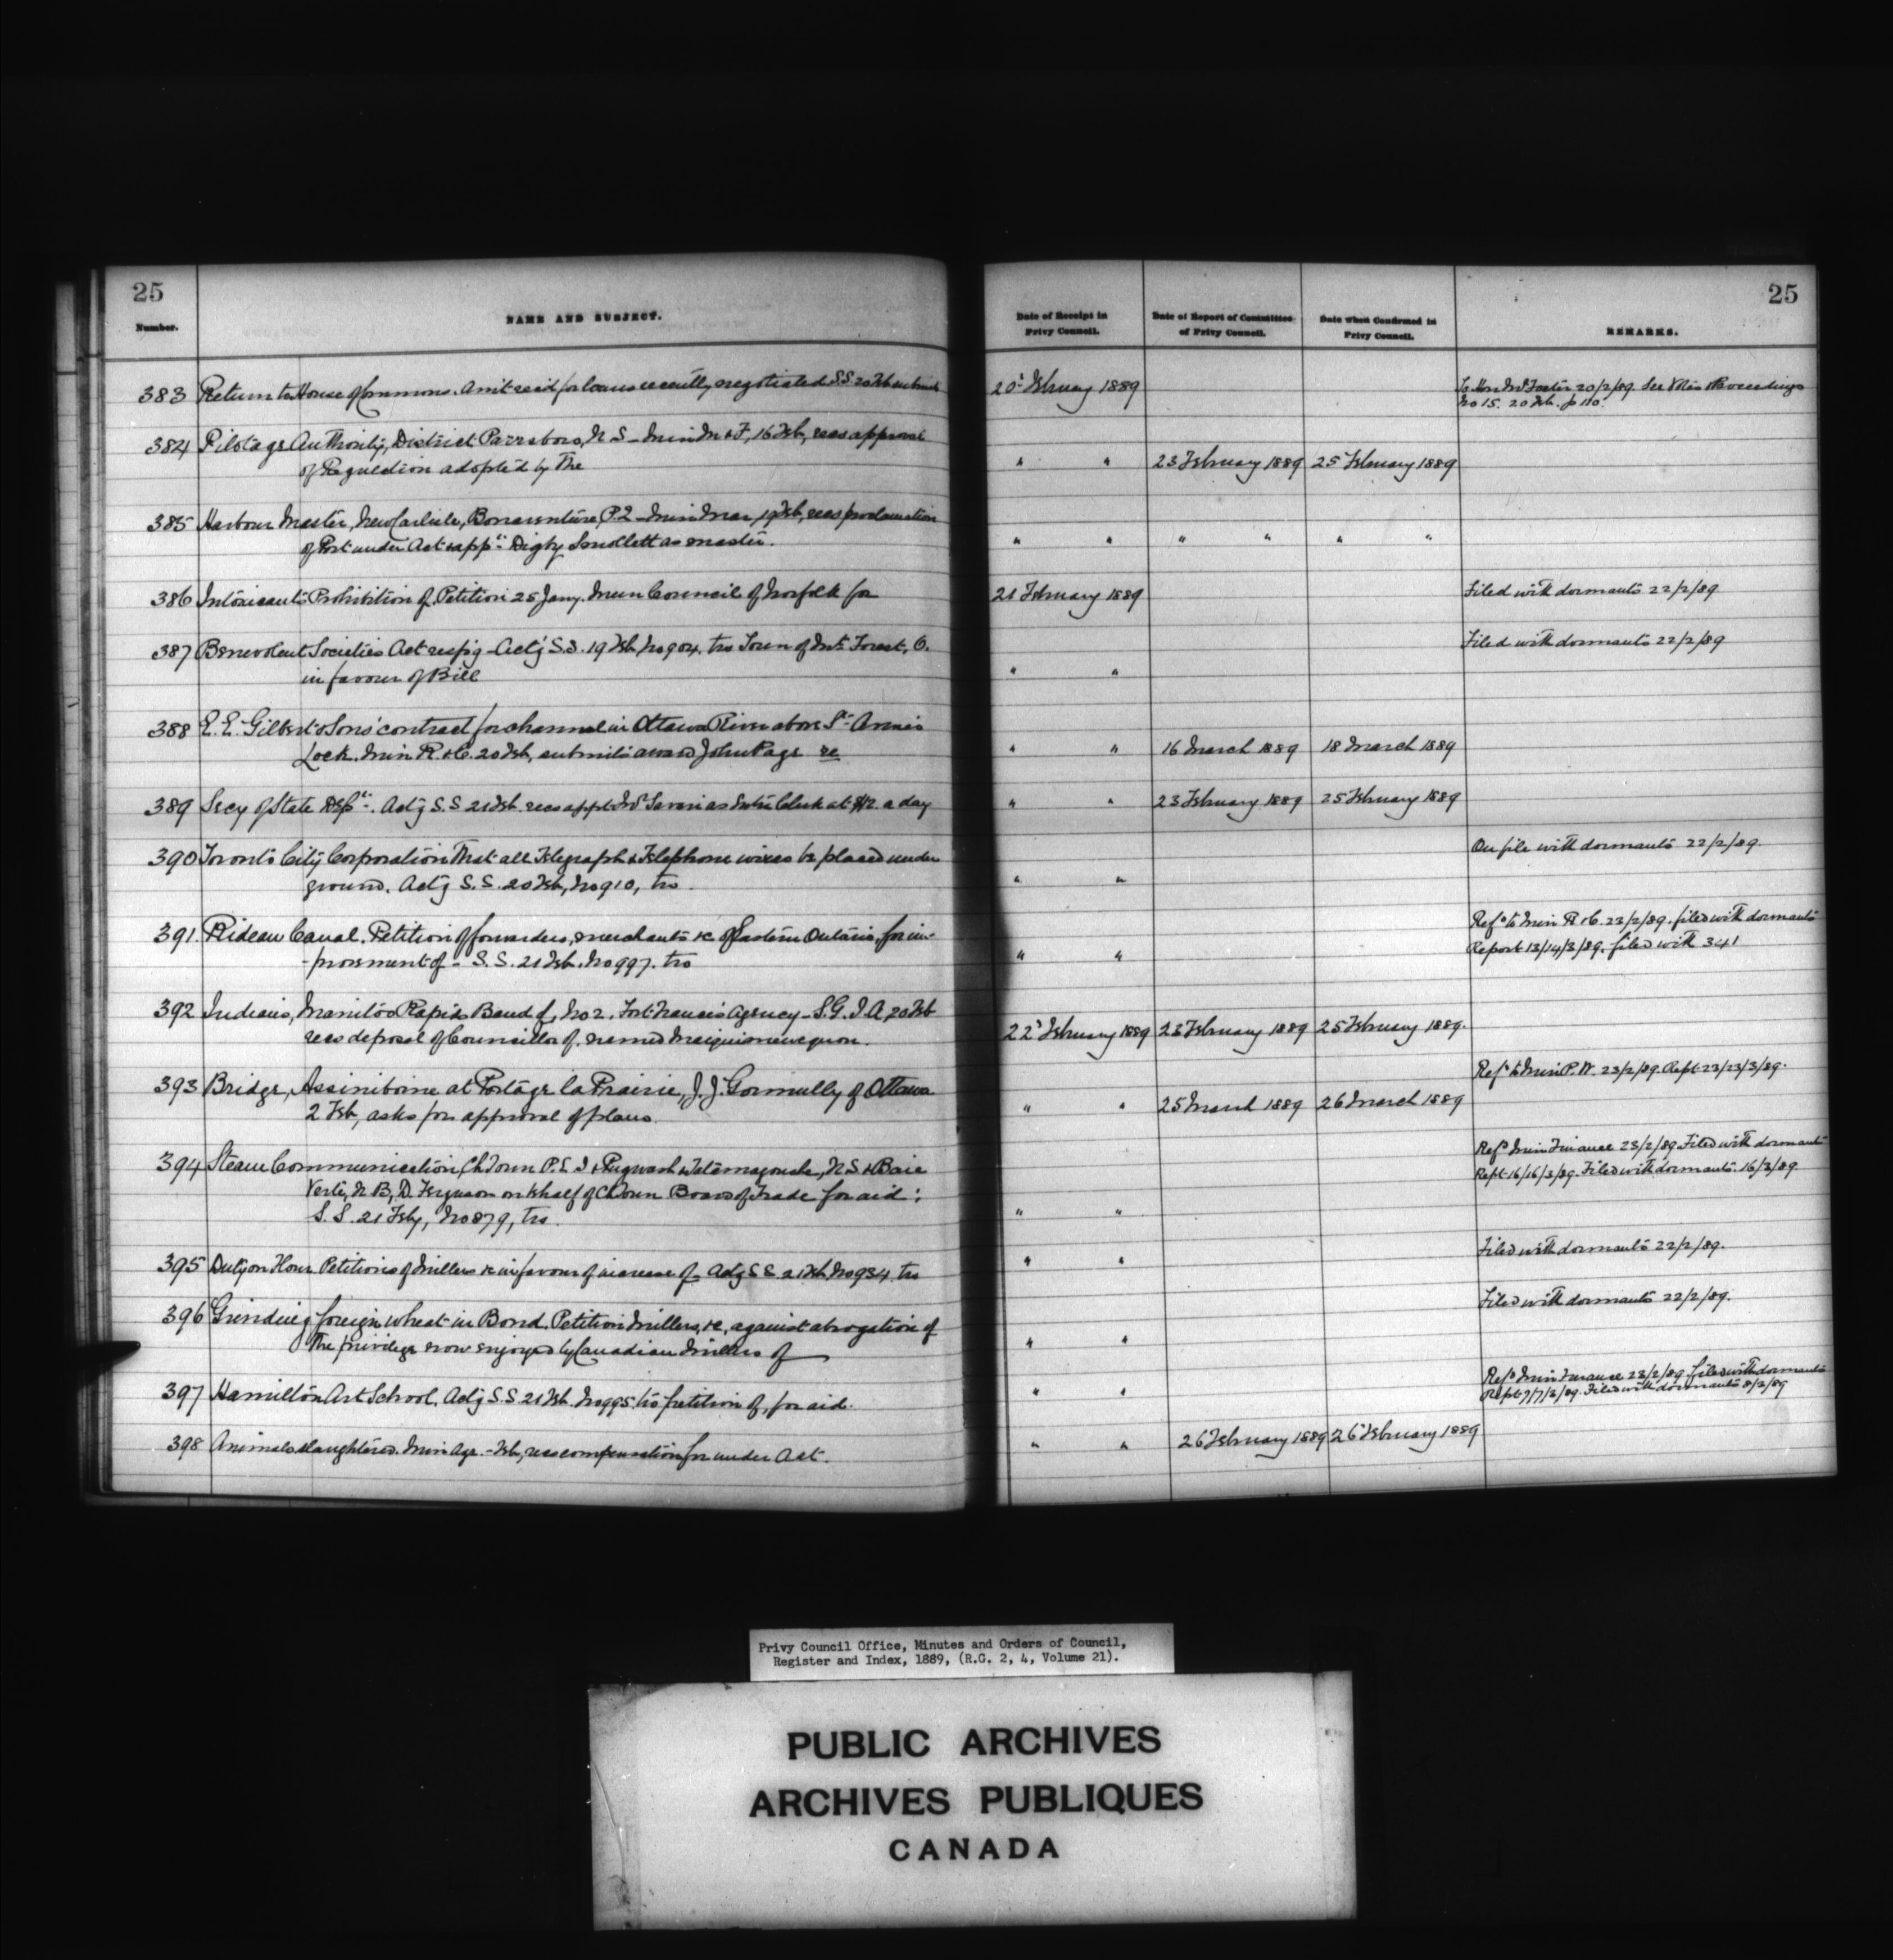 25
Number.
NAME AND SUBJECT.
Date of Receipt in Privy Council.
Date of Report of Committee of Privy Council.
Date when Confirmed in Privy Council.
REMARKS.
25
383 Return to House of Commons. Amt recd for loans recently negotiated S.S. 20 Feb 20 February 1889 To Hon Mr Foster 20/2/89. See Votes & Proceedings
No 15. 20 Feb. p 110.
384 Pilotage Authority, District Parrsboro, N S - Min M & F, 16 Feb, recs approval
of Regulation adopted by the " " 23 February 1889 25 February 1889
385 Harbour Master, New Carlisle, Bonaventure, P.Q - Min Mar, 19 Feb, recs proclamation
of Port under Act & appt Digby Smollett as master. " " " " " "
386 Intoxicants Prohibition of, Petition 25 Jany. Mun Council of Norfolk for 21 February 1889 Filed with dormants 22/2/89
387 Benevolent Societies Act respg - Actg S.S. 19 Feb No 904. trs Town of Mt Forest, O. Filed with dormants 22/2/89
in favour of Bill " "
388 E. E. Gilbert & Sons' contract for channel in Ottawa River above St Annes
Lock. Min R. & C. 20 Feb, submits award John Page re " " 16 March 1889 18 March 1889
389 Secy of State Dept. Actg S.S 21 Feb. recs appt as Extra Clerk at $2 a day " " 23 February 1889 25 February 1889
390 Toronto City Corporation That all Telegraph & Telephone wires be placed under On file with dormants 22/2/89.
ground. Actg S.S. 20 Feb, No 910, trs. " "
391 Rideau Canal. Petition of forwarders, merchants &c of Eastern Ontario, for im- Refd to Min R & C. 23/2/89. filed with dormants
-provement of - S.S. 21 Feb. No 997. trs " " Report 13/14/3/89. filed with 341
392 Indians, Manitou Rapids Band of, No 2, Fort Francis Agency - S.G.I.A, 20 Feb
recs deposal of Councillor of, named 22 February 1889 23 February 1889 25 February 1889.
393 Bridge, Assiniboine at Portage la Prairie, J. J. Gormully of Ottawa Refd to Min P.W. 23/2/89. Rept 23/23/3/89.
2 Feb, asks for approval of plans. " " 25 March 1889 26 March 1889
394 Steam Communication, ChTown P.E.I & Pugwash & Tatamagouche, N S & Baie Refd Min Finance 23/2/89 Filed with dormants
Verte, N B, D. Ferguson on behalf of ChTown Board of Trade for aid: Rept 16/16/3/89. Filed with dormants 16/3/89
S.S. 21 Feby, No 879, trs. " "
395 Duty on Flour Petitions of Millers &c in favour of increase of - Actg S S 21 Feb No 934 trs " " Filed with dormants 22/2/89.
396 Grinding foreign wheat in Bond. Petition Millers, &c, against abrogation of Filed with dormants 22/2/89.
the privilege now enjoyed by Canadian Millers of " "
397 Hamilton Art School, Actg S.S. 21 Feb. No 995. trs petition of, for aid. " " Refd Min Finance 23/2/89 filed with dormants
Rept 7/7/3/89. Filed with dormants 8/3/89
398 Animals slaughtered. Min Agr - Feb, recs compensation for under Act. " " 26 February 1889 26 February 1889
Privy Council Office, Minutes and Orders of Council,
Register and Index, 1889, (R.G. 2, 4, Volume 21).
PUBLIC ARCHIVES
ARCHIVES PUBLIQUES
CANADA